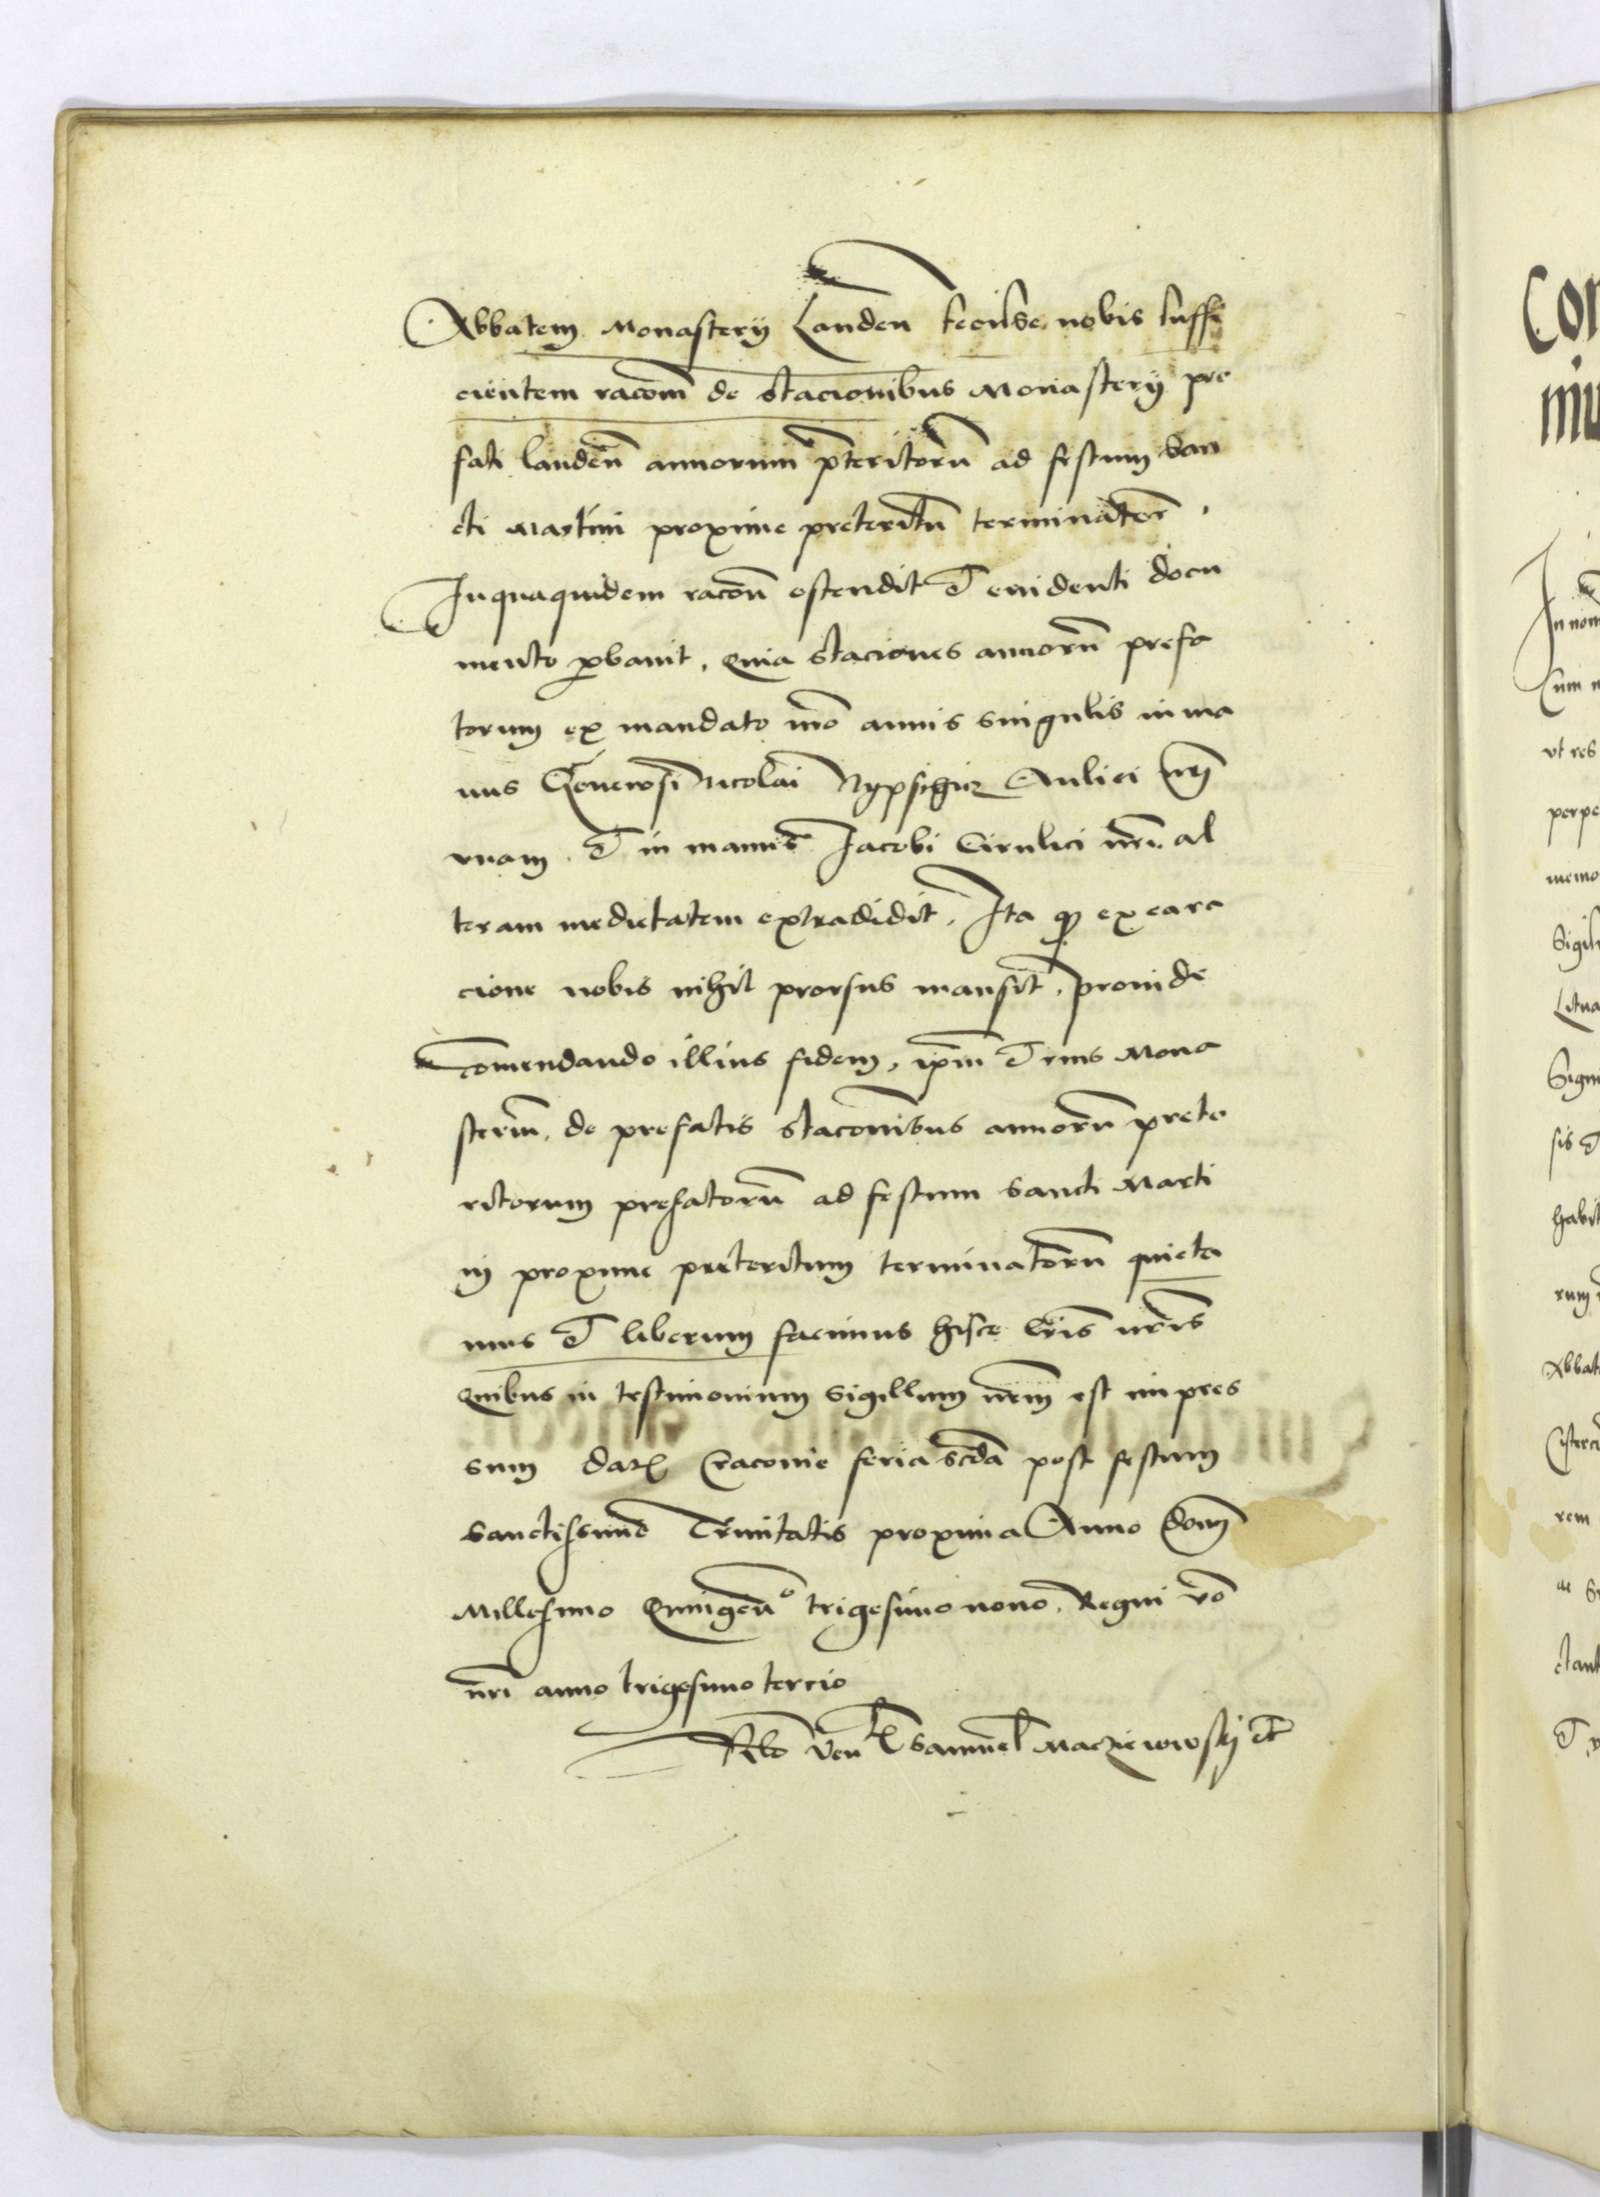 Abbatem Monasterÿ Landen fecisse nobis suffi
cientem racom de stacionibus Monasterÿ pre
fati landen annorum pteritoru ad festum San
cti Martini proxime preteritu terminator.
In quaquidem racon ostendit et euidenti docu
mento pbauit, Quia staciones annoru prefa
torum ex mandato nro annis singulis in ma
nus Generosi Nicolai Aulici nri
vnam et in manus Jacobi nri al
teram medietatem extradidit. Ita qd ex ea ra
cione nobis nihil prorsus mansit, proinde
Comendando illius fidem, ipm et eius Mona
steriu, de prefatis staconibus annoru prete
ritorum prefatoru ad festum Sancti Marti
nj proxime preteritum terminatoru quieta
mus et liberum facimus hisce lris nris
Quibus in testimonium Sigillum nrm est impres
sum dat Cracouie feria scda post festum
Sanctissime Trinitatis proxima Anno Domi
Millesimo Quingen° trigesimo nono, Regni vo
nri anno trigesimo tercio
Rlo ven Samuel Macziewski etc
Com
mu
In nom
Cum
vt res
perpe
memo
Sigis
Litua
Sigm
sis et
habit
rum
Abbat
Cisterci
rem
ae S
ctant
et